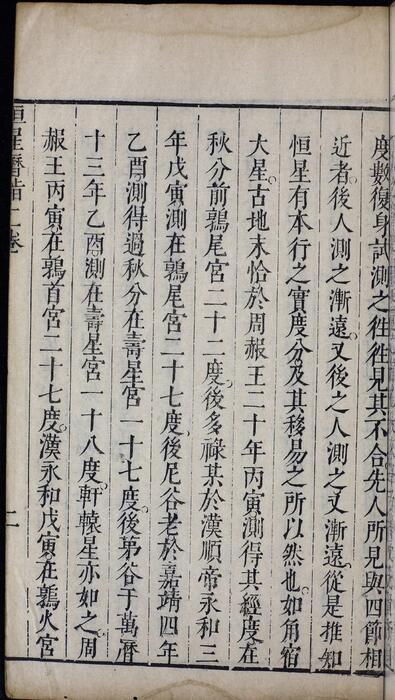 度數復身試測之徃徃見其不合先人所見與四節相
近者後人測之漸遠又後之人測之又漸遠從是推知
恒星有本行之實度分及其移易之所以然也如角宿
大星古地末恰於周赧王二十年丙寅測得其經度在
秋分前鶉尾宮二十二度後多祿某於漢順帝永和三
年戊寅測在鶉尾宮二十七度後尼谷老於嘉靖四年
乙酉測得過秋分在壽星宮一十七度後第谷于萬曆
十三年乙酉測在壽星宮一十八度軒轅星亦如之周
赧王丙寅在鶉首宮二十七度漢永和戊寅在鶉火宮
恒星曆指二卷
二